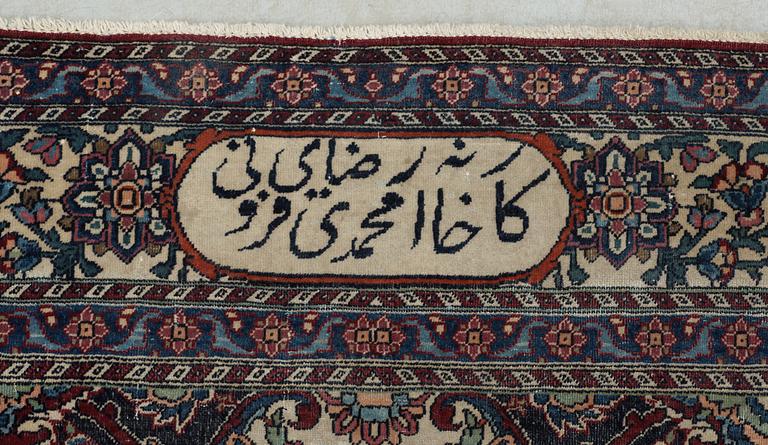 رنه رضای نی
کا خا ا محمدی فرو